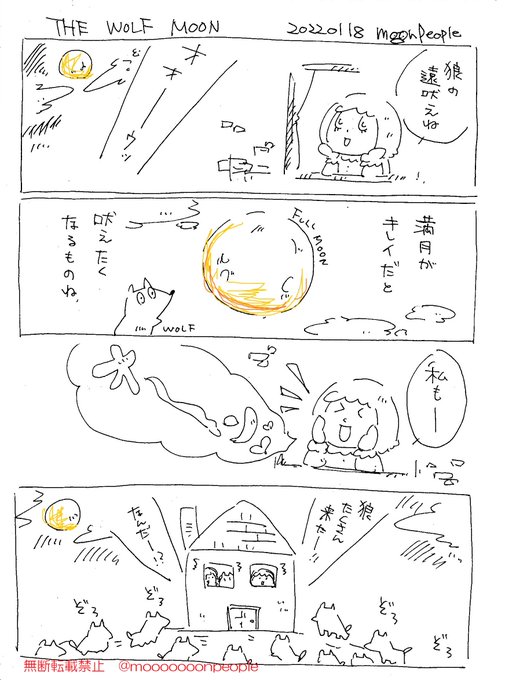 THE WOLF MOON
20220118 moonpeople
狼の
遠吠えね
満月が
キレイだと
FULL
MOON
吠えたく
なるものね
WOLF
私もー
狼
たくさん
来たー!
なんだー!?
ぞろ
ぞろ
ぞろ
ぞろ
無断転載禁止 @mooooooonpeople